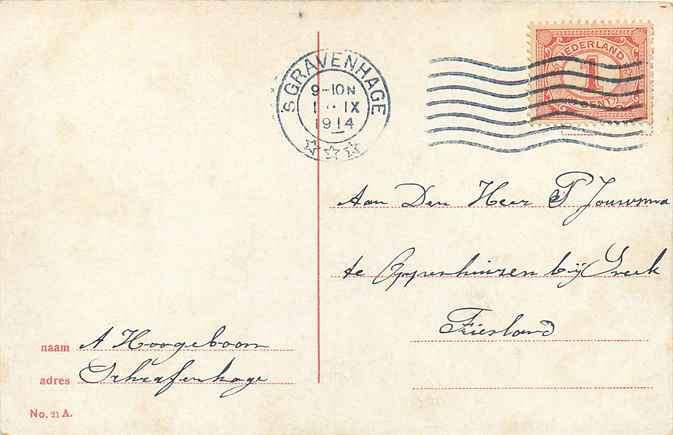 'SGRAVENHAGE
9-10N
1 · IX
1914
NEDERLAND
1
CENT
Aan Den Heer P Jouwsma
te Oppenhuizen bij Sneek
Friesland
naam A Hoogeboom
adres Schrafenhage
No. 21 A.